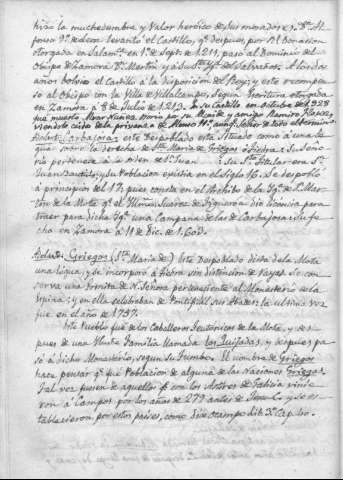 hizo la muchedumbre y Valor heróico de sus moradores. Dn. Al-
fonso 9º. de Leon levantó el Castillo, y despues, por Rl. Donacion
otorgada en Salamca. en 1º. de Septe. de 1211, pasó al Dominio del
Obispo de Zamora Dn. Martin y á su Sta. Yga. del Salvador. A los dos
años bolvió el Castillo á la disposicion del Rey, y este recompen-
só al Obispo con la Villa de Villalcampo, segun Escritura otorgada
en Zamora á 8 de Julio de 1213. En su Castillo en octubre de 1328
fué muerto Alvar Nuñez Osorio por su Alcaide y amigo Ramiro Florez,
viendo esto de la presencia de Alonso 11º.
Carbajosa: Despoblado está situado como á una le-
gua sobre la derecha de Sta. Maria de Griegos : su Seño-
río pertenece á la orden de Sn. Juan : Su Titular era Sn.
Juan Bautista, y su Poblacion existia en el siglo 16. Se despobló
á principios del 17, pues consta en el Archibo de la Yga. de Sn. Mar-
tin de la Mota qe. el Illmo. Suarez de Figueroa dió licencia para
traer para dicha Yga. una Campana de las de Carbajosa: Su fe-
cha en Zamora á 11 de Dic. de 1603.
Griegos (Sta. Maria de) Este Despoblado dista de la Mota
una legua, y se incorporó á ella sin distincion de Rayas. Se con-
serva una Ermita de N. Señora perteneciente al Monasterio de la
Espina; y en ella celebraban de Pontifical sus Abades: la ultima vez
fue en el año de 1797.
Este Pueblo fué de los Caballeros Teutonicos de la Mota, y des-
pues de una Ilustre Familia llamada los Quijadas, y despues pa-
só á dicho Monasterio, segun su Tumbo. El nombre de Griegos
hace pensar qe. fué Poblacion de alguna de las Naciones Griegas.
Tal vez fuesen de aquellos qe. con los Astures de Galicia vinie-
ron á Campos por los años de 279 antes de Jesu-C. y se es-
tablecieron por estos paises, como dice Ocampo Lib. 3º. Cap.